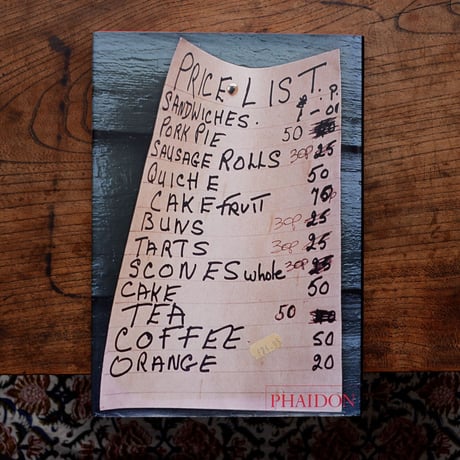 PRICE LIST.
£ . P.
SANDWICHES. 1 - 00
PORK PIE 50
SAUSAGE ROLLS 30p 25
QUICHE 50
CAKE FRUIT 75p
BUNS 30p 25
TARTS 30p 25
SCONES whole 30p 25
CAKE 50
TEA 50
COFFEE. 50
ORANGE 20
PHAIDON